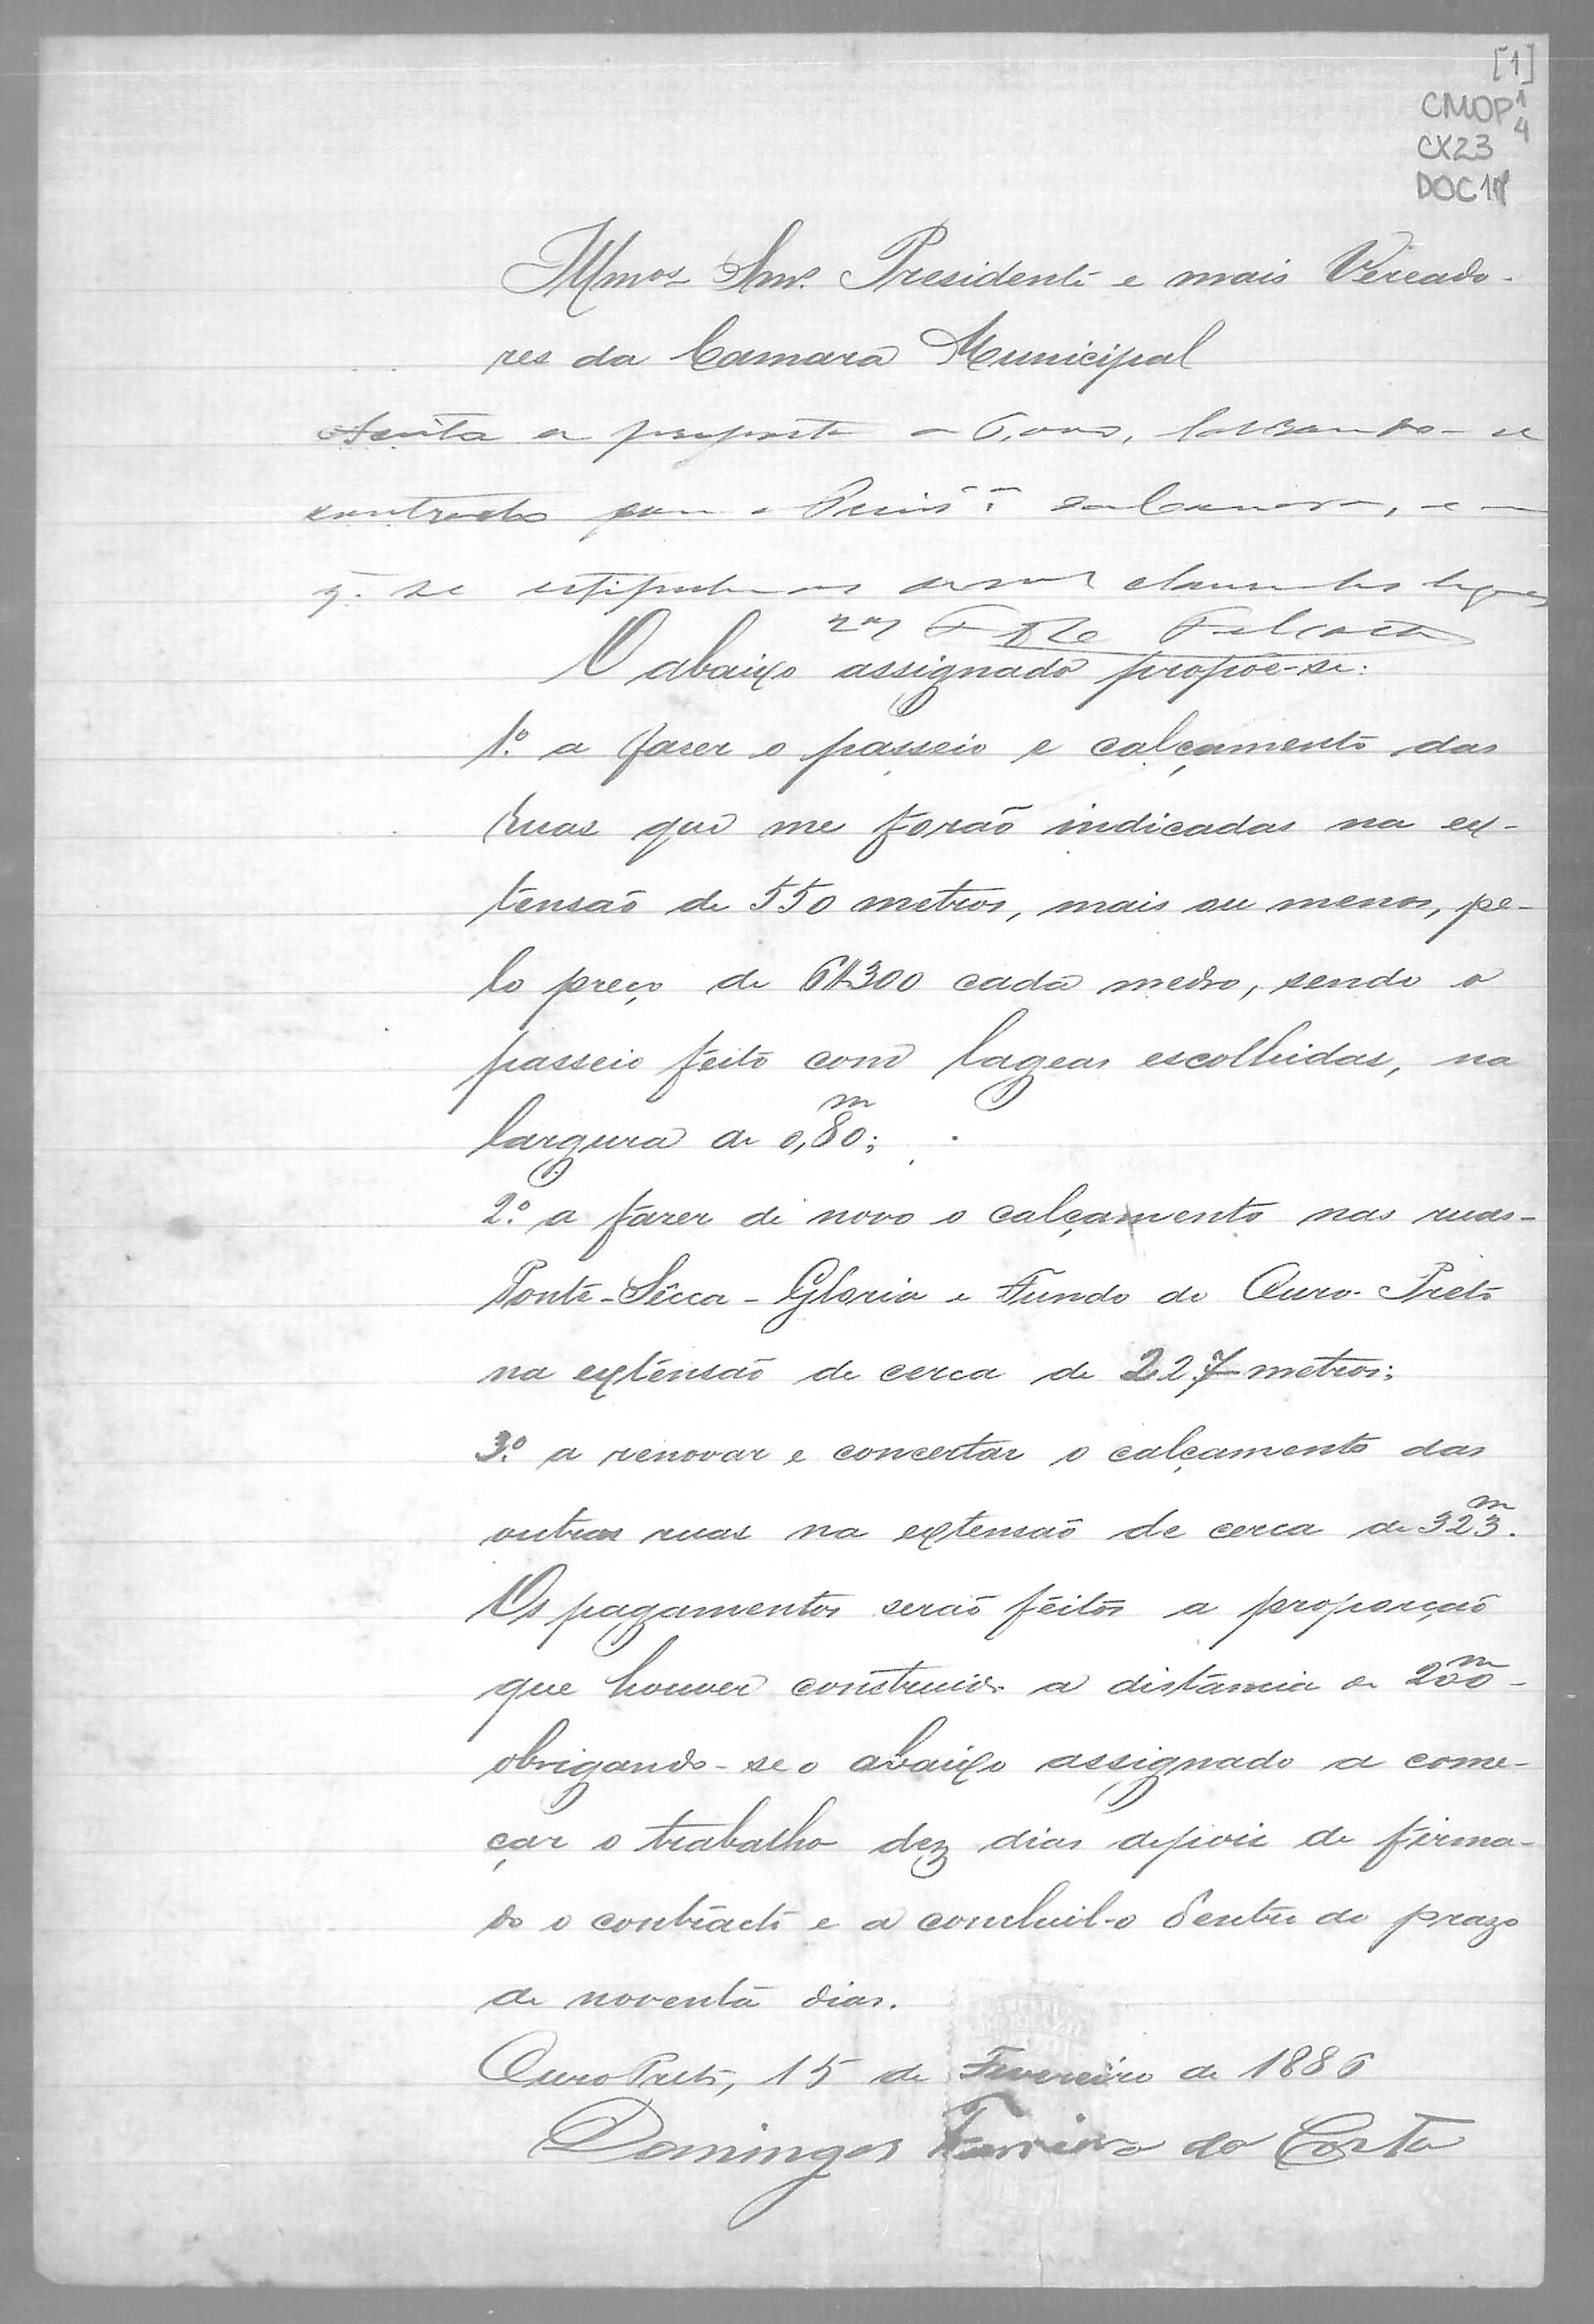 [1]
CMOP 1
4
CX23
DOC 11
Illmos Snrs. Presidente e mais Vereado-
res da Camara Municipal
Aceita a proposta a 6,000, lavrando-se
contracto com a da Camara, e
q. se estipulem as clausulas legaes
O abaixo assignado propõe-se:
1.º a fazer o passeio e calçamento das
ruas que me forão indicadas na ex-
tensão de 550 metros, mais ou menos, pe-
lo preço de 6$300 cada metro, sendo o
passeio feito com lageas escolhidas, na
largura de 0,80m;
2.º a fazer de novo o calçamento nas ruas-
Ponte-Sêcca-Gloria e Fundo do Ouro-Preto
na extensão de cerca de 227 metros;
3.º a renovar e concertar o calçamento das
outras ruas na extensão de cerca de 323m.
Os pagamentos serão feitos a proporção
que houver construido a distancia de 200m-
obrigando-se o abaixo assignado a come-
çar o trabalho dez dias depois de firma-
do o contracto e a concluil-o dentro do prazo
de noventa dias.
Ouro Preto, 15 de Fevereiro de 1886
Domingos Ferreira da Costa